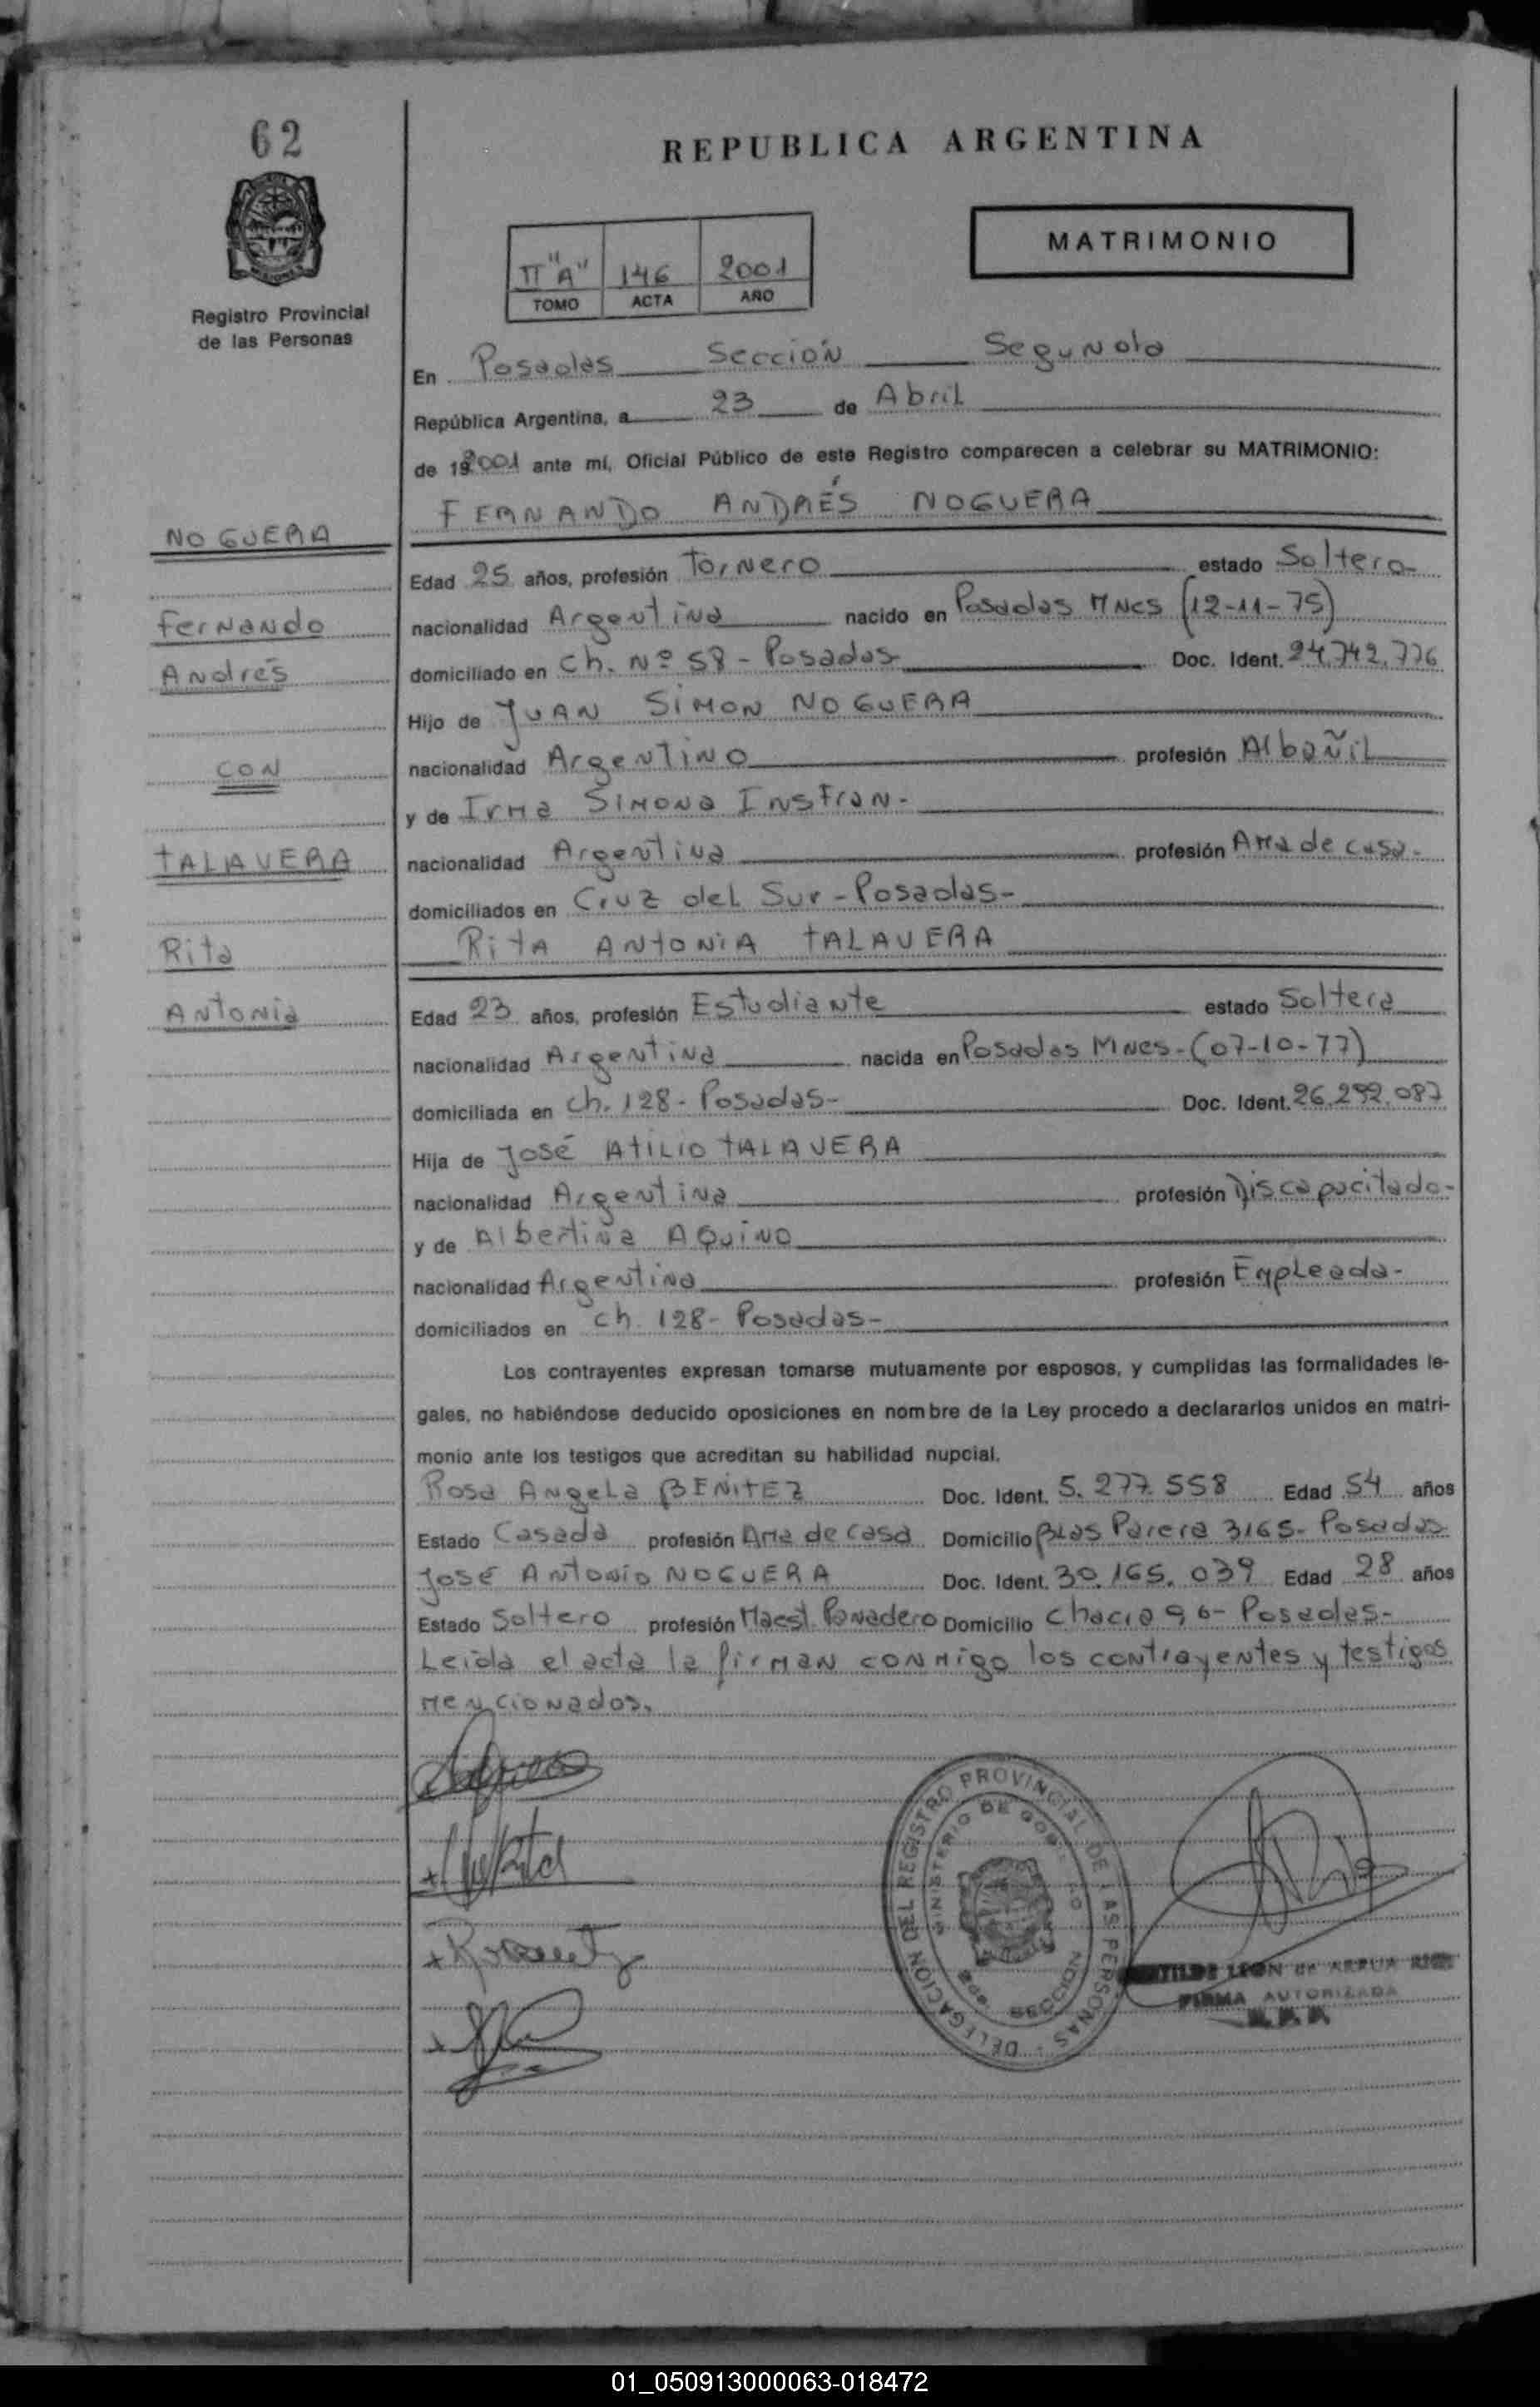 62
REPUBLICA ARGENTINA
MATRIMONIO
II "A" 146 2001
TOMO ACTA AÑO
Registro Provincial
de las Personas
En Posadas Sección Segunda
República Argentina, a 23 de Abril
de 2001 ante mí, Oficial Público de este Registro comparecen a celebrar su MATRIMONIO:
FERNANDO ANDRÉS NOGUERA
NOGUERA
Edad 25 años, profesión Tornero estado Soltero
Fernando
nacionalidad Argentina nacido en Posadas Mnes (12-11-75)
Andrés
domiciliado en Ch. Nº 58 - Posadas Doc. Ident. 24.742.776
Hijo de JUAN SIMON NOGUERA
CON
nacionalidad Argentino profesión Albañil
y de Irma Simona Insfran-
TALAVERA
nacionalidad Argentina profesión Ama de casa-
domiciliados en Cruz del Sur - Posadas-
Rita
RitA ANtoNiA tALAVERA
Antonia
Edad 23 años, profesión Estudiante estado Soltera
nacionalidad Argentina nacida en Posadas Mnes - (07-10-77)
domiciliada en Ch. 128 - Posadas- Doc. Ident. 26.292.087
Hija de José AtILIO tALAVERA
nacionalidad Argentina profesión Discapacitado-
y de Albertina AQuiNO
nacionalidad Argentina profesión Empleada-
domiciliados en ch. 128 - Posadas-
Los contrayentes expresan tomarse mutuamente por esposos, y cumplidas las formalidades le-
gales, no habiéndose deducido oposiciones en nombre de la Ley procedo a declararlos unidos en matri-
monio ante los testigos que acreditan su habilidad nupcial.
Rosa Angela BENITEZ Doc. Ident. 5.277.558 Edad 54 años
Estado Casada profesión Ama de casa Domicilio Blas Parera 3165 - Posadas
José Antonio NOGUERA Doc. Ident. 30.165.039 Edad 28 años
Estado Soltero profesión Maest. Panadero Domicilio Chacra 96 - Posadas-
Leida el acta la firman conmigo los contrayentes y testigos
mencionados.
DELEGACION DEL REGISTRO PROVINCIAL DE LAS PERSONAS
MINISTERIO DE GOBIERNO
SECCION
LEON DE
FIRMA AUTORIZADA
01_050913000063-018472